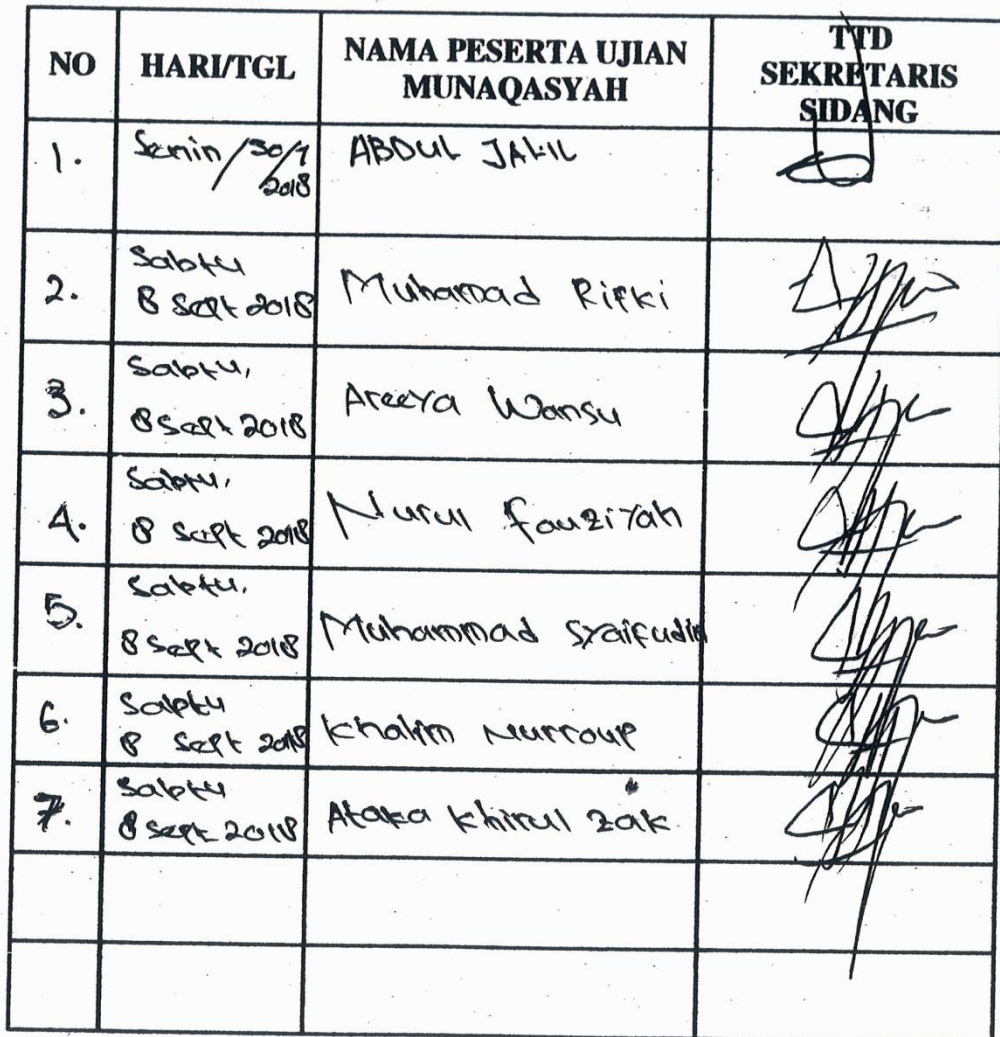 NO HARI/TGL NAMA PESERTA UJIAN MUNAQASYAH TTD SEKRETARIS SIDANG
1. Senin/30/7 2018 ABDUL JALIL
2. Sabtu 8 Sept 2018 Muhamad Rifki
3. Sabtu, 8 Sept 2018 Areeya Wansu
4. Sabtu, 8 Sept 2018 Nurul Fauziyah
5. Sabtu, 8 Sept 2018 Muhammad Syaifudin
6. Sabtu 8 Sept 2018 Khalim Nurrouf
7. Sabtu 8 Sept 2018 Ataka Khirul Zak